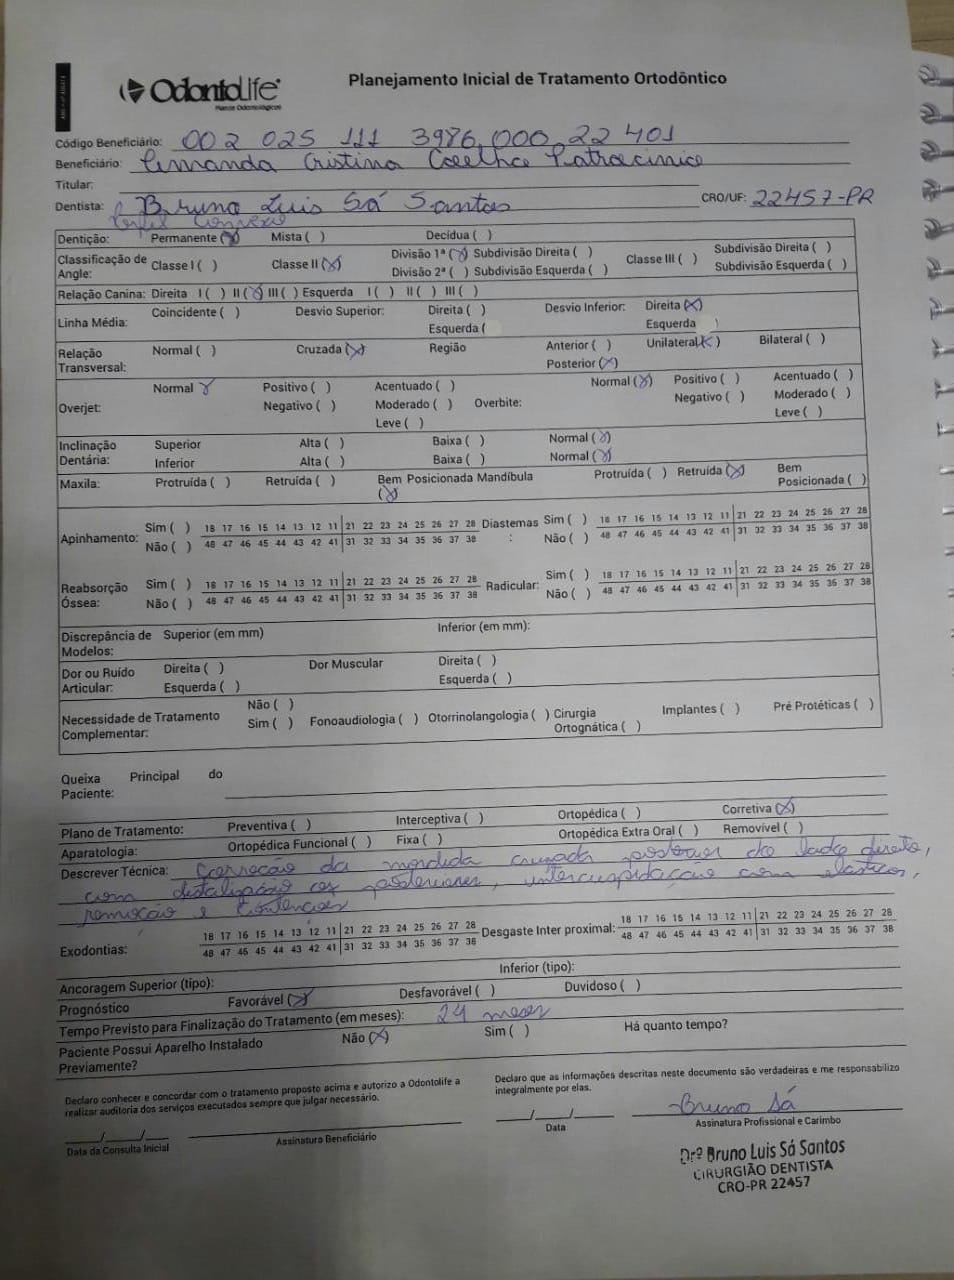 OdontoLife
Planos Odontológicos
Planejamento Inicial de Tratamento Ortodôntico
Código Beneficiário: 002 025 111 3986,000,22 401
Beneficiário: Fernanda Cristina Coelho Patrocinio
Titular:
Dentista: Bruno Luis Sá Santos CRO/UF: 22457-PR
Perfil Convexo
Dentição: Permanente (X) Mista ( ) Decídua ( )
Classificação de Angle: Classe I ( ) Classe II (X) Divisão 1ª (X) Subdivisão Direita ( ) Classe III ( ) Subdivisão Direita ( )
Divisão 2ª ( ) Subdivisão Esquerda ( ) Subdivisão Esquerda ( )
Relação Canina: Direita I ( ) II (X) III ( ) Esquerda I ( ) II ( ) III ( )
Linha Média: Coincidente ( ) Desvio Superior: Direita ( ) Desvio Inferior: Direita (X)
Esquerda ( Esquerda )
Relação Transversal: Normal ( ) Cruzada (X) Região Anterior ( ) Unilateral (X) Bilateral ( )
Posterior (X)
Overjet: Normal X Positivo ( ) Acentuado ( ) Overbite: Normal (X) Positivo ( ) Acentuado ( )
Negativo ( ) Moderado ( ) Negativo ( ) Moderado ( )
Leve ( ) Leve ( )
Inclinação Dentária: Superior Alta ( ) Baixa ( ) Normal (X)
Inferior Alta ( ) Baixa ( ) Normal (X)
Maxila: Protruída ( ) Retruída ( ) Bem Posicionada (X) Mandíbula Protruída ( ) Retruída (X) Bem Posicionada ( )
Apinhamento: Sim ( ) 18 17 16 15 14 13 12 11 21 22 23 24 25 26 27 28 Diastemas : Sim ( ) 18 17 16 15 14 13 12 11 21 22 23 24 25 26 27 28
Não ( ) 48 47 46 45 44 43 42 41 31 32 33 34 35 36 37 38 Não ( ) 48 47 46 45 44 43 42 41 31 32 33 34 35 36 37 38
Reabsorção Óssea: Sim ( ) 18 17 16 15 14 13 12 11 21 22 23 24 25 26 27 28 Radicular: Sim ( ) 18 17 16 15 14 13 12 11 21 22 23 24 25 26 27 28
Não ( ) 48 47 46 45 44 43 42 41 31 32 33 34 35 36 37 38 Não ( ) 48 47 46 45 44 43 42 41 31 32 33 34 35 36 37 38
Discrepância de Modelos: Superior (em mm) Inferior (em mm):
Dor ou Ruído Articular: Direita ( ) Dor Muscular Direita ( )
Esquerda ( ) Esquerda ( )
Necessidade de Tratamento Complementar: Não ( )
Sim ( ) Fonoaudiologia ( ) Otorrinolangologia ( ) Cirurgia Ortognática ( ) Implantes ( ) Pré Protéticas ( )
Queixa Principal do Paciente:
Plano de Tratamento: Preventiva ( ) Interceptiva ( ) Ortopédica ( ) Corretiva (X)
Aparatologia: Ortopédica Funcional ( ) Fixa ( ) Ortopédica Extra Oral ( ) Removível ( )
Descrever Técnica: Correção da mordida cruzada posterior do lado direito,
com distalização os posteriores, intercuspidação com elasticos,
remoção e contenções
Exodontias: 18 17 16 15 14 13 12 11 21 22 23 24 25 26 27 28 Desgaste Inter proximal: 18 17 16 15 14 13 12 11 21 22 23 24 25 26 27 28
48 47 46 45 44 43 42 41 31 32 33 34 35 36 37 38 48 47 46 45 44 43 42 41 31 32 33 34 35 36 37 38
Ancoragem Superior (tipo): Inferior (tipo):
Prognóstico Favorável (X) Desfavorável ( ) Duvidoso ( )
Tempo Previsto para Finalização do Tratamento (em meses): 24 meses
Paciente Possui Aparelho Instalado Previamente? Não (X) Sim ( ) Há quanto tempo?
Declaro conhecer e concordar com o tratamento proposto acima e autorizo a Odontolife a
realizar auditoria dos serviços executados sempre que julgar necessário.
Declaro que as informações descritas neste documento são verdadeiras e me responsabilizo
integralmente por elas.
__/__/__ Data da Consulta Inicial
Assinatura Beneficiário
__/__/__ Data
Bruno Sá
Assinatura Profissional e Carimbo
Drº Bruno Luis Sá Santos
CIRURGIÃO DENTISTA
CRO-PR 22457